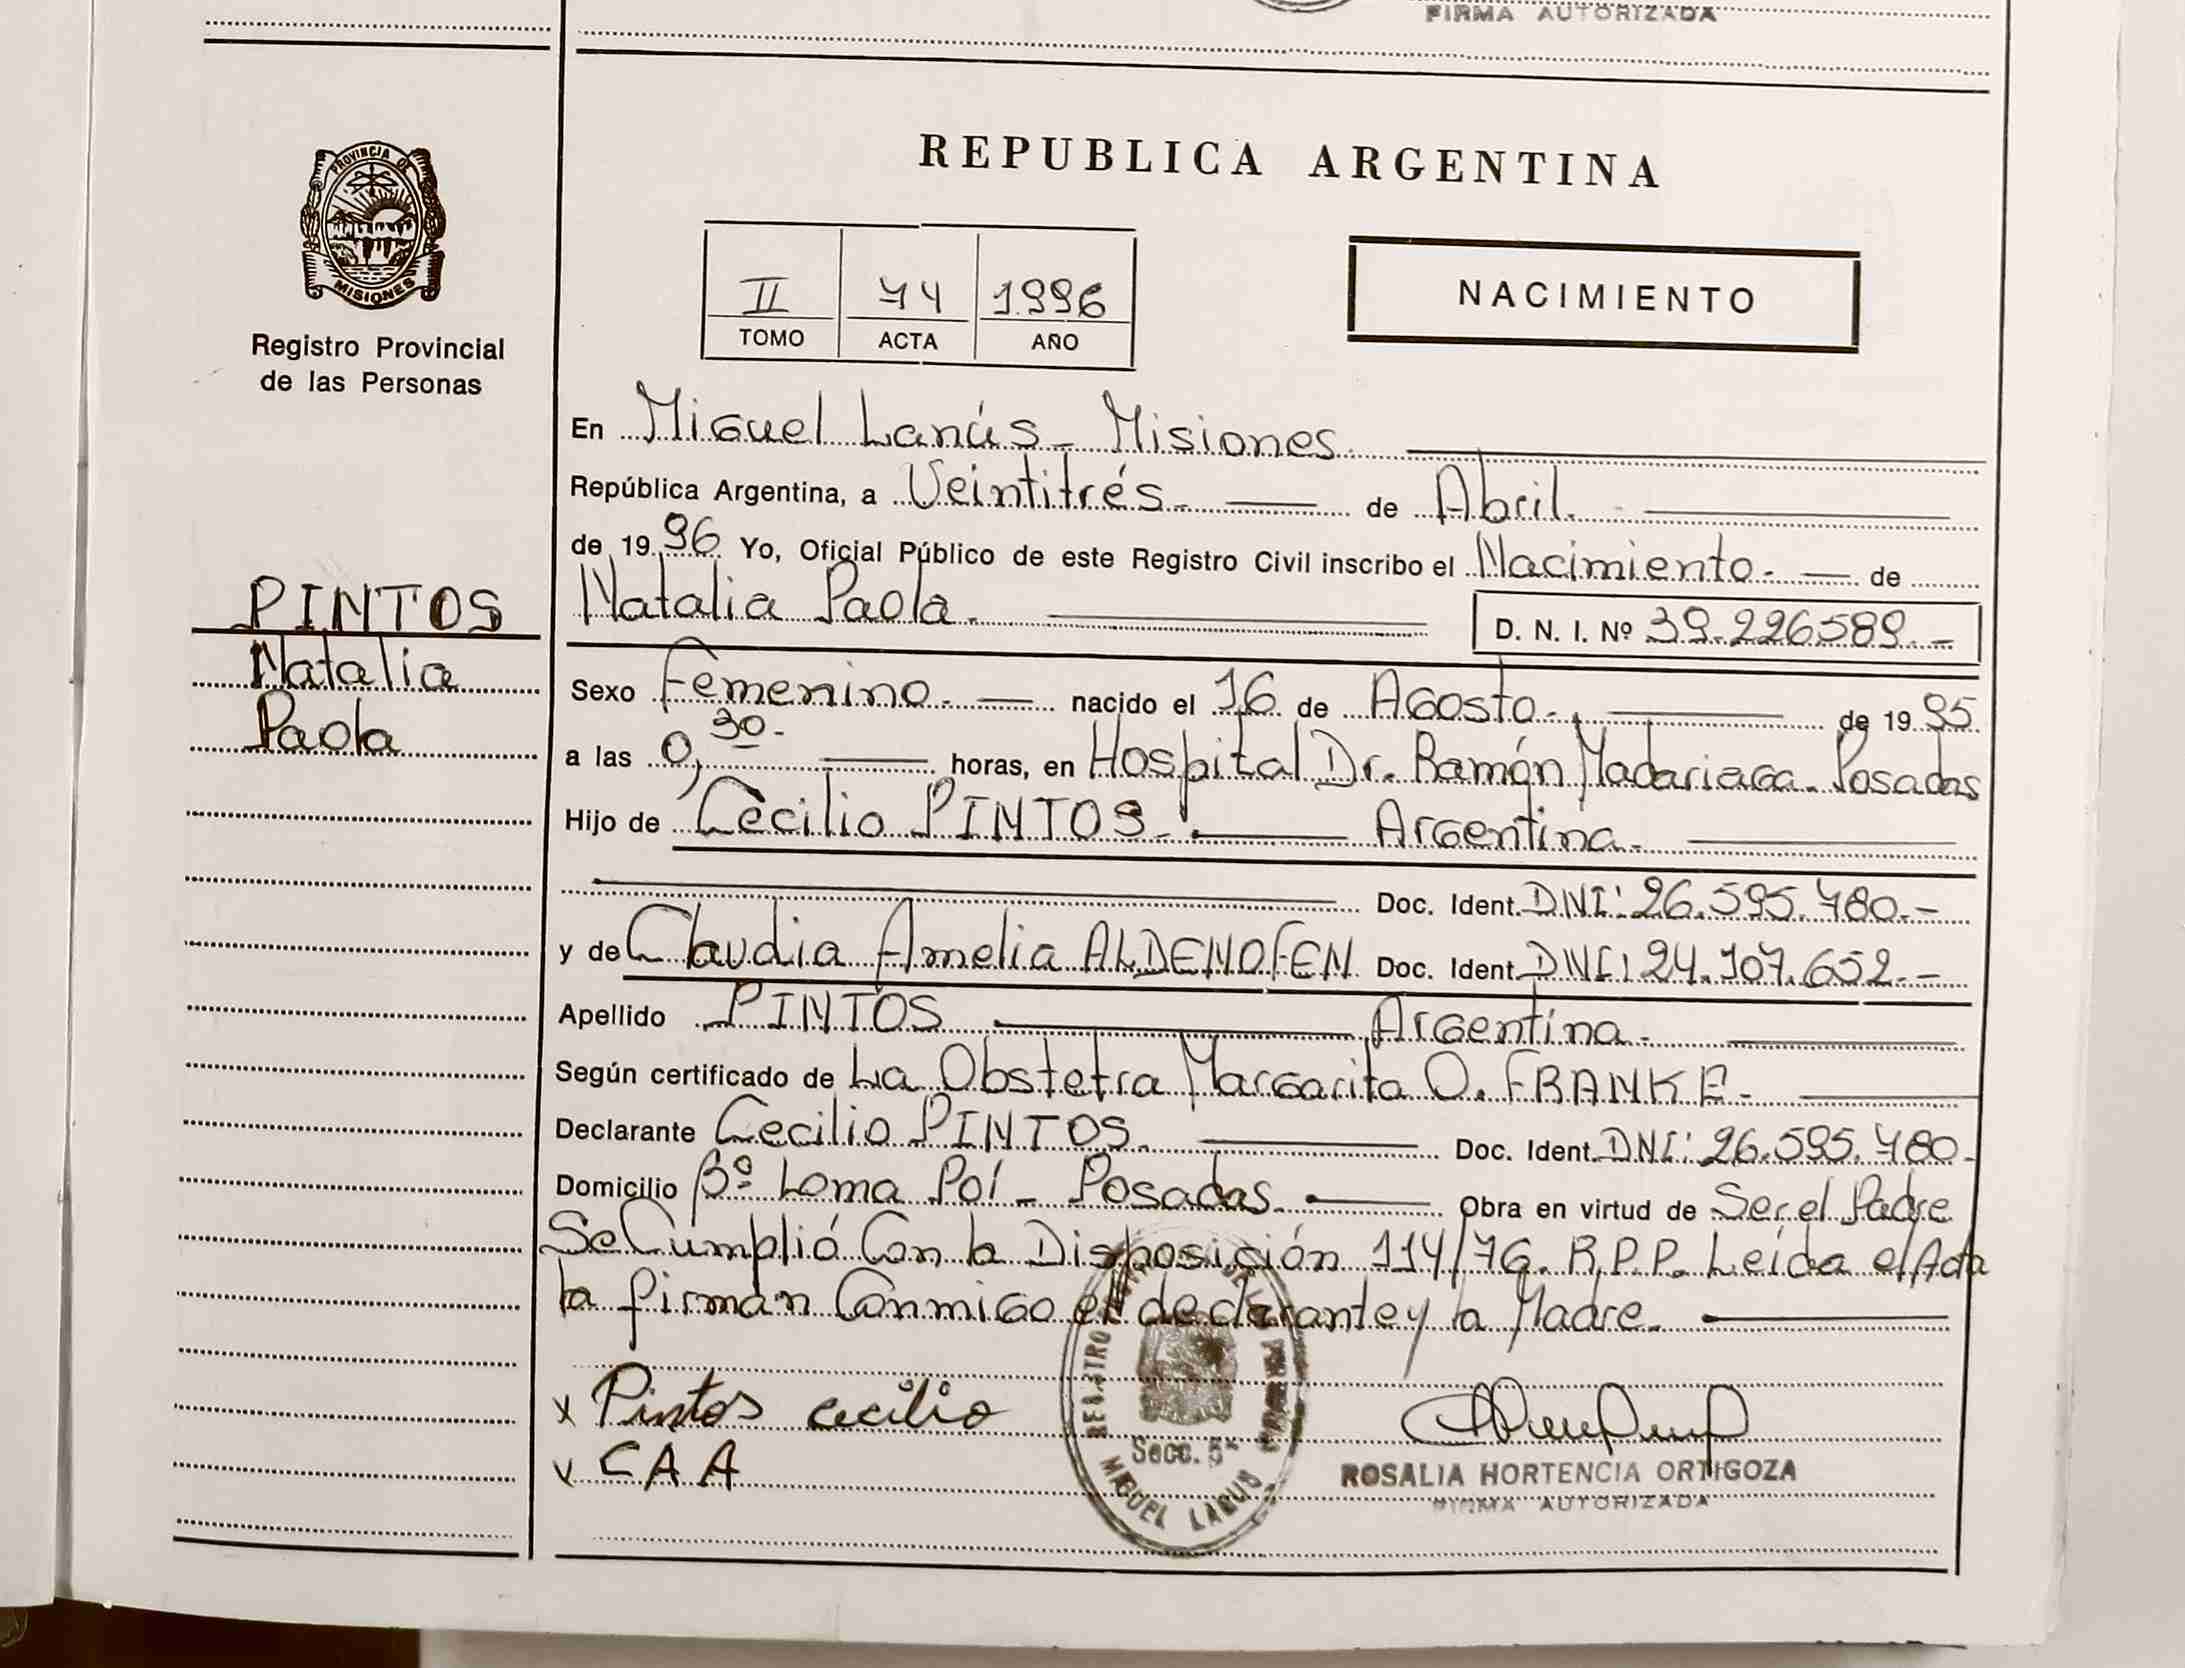 FIRMA AUTORIZADA
PROVINCIA DE
MISIONES
Registro Provincial
de las Personas
REPUBLICA ARGENTINA
II 74 1996
TOMO ACTA AÑO
NACIMIENTO
En Miguel Lanús - Misiones
República Argentina, a Veintitrés - de Abril.
de 1996 Yo, Oficial Público de este Registro Civil inscribo el Nacimiento - de
PINTOS
Natalia
Paola
Natalia Paola. D. N. I. Nº 39.226.589.-
Sexo Femenino. - nacido el 16 de Agosto. de 1995
a las 0,30- horas, en Hospital Dr. Ramón Madariaga. Posadas
Hijo de Cecilio PINTOS. Argentina.
Doc. Ident. DNI: 26.595.780.-
y de Claudia Amelia ALDENOFEN Doc. Ident. DNI: 24.107.652.-
Apellido PINTOS Argentina.
Según certificado de La Obstetra Margarita O. FRANKE.
Declarante Cecilio PINTOS. Doc. Ident. DNI: 26.595.780-
Domicilio Bº Loma Poí - Posadas. Obra en virtud de Ser el Padre
Se Cumplió Con la Disposición 114/76. R.P.P. Leída el Acta
la firman Conmigo el declarante y la Madre.
x Pintos cecilio
x C A A
Secc. 5ª
MIGUEL LANUS
ROSALIA HORTENCIA ORTIGOZA
FIRMA AUTORIZADA